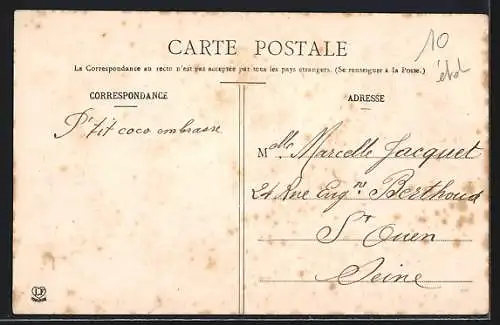 CARTE POSTALE
10
La Correspondance au recto n'est pas acceptée par tous les pays étrangers. (Se renseigner à la Poste.)
CORRESPONDANCE
P'tit coco embrasse
ADRESSE
Melle Marcelle Jacquet
24 Rue Eugne Berthoud
St Ouen
Seine